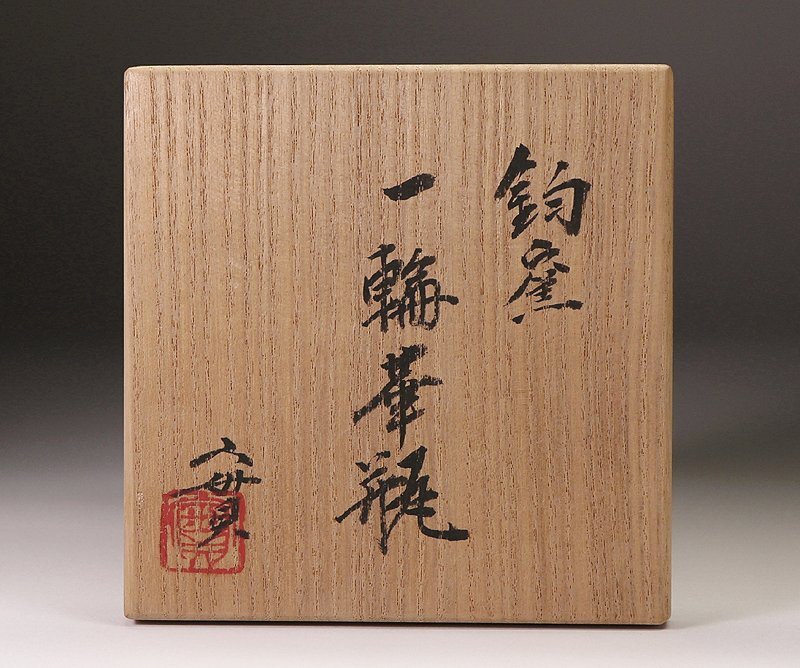 鈞窯
一輪華瓶
實